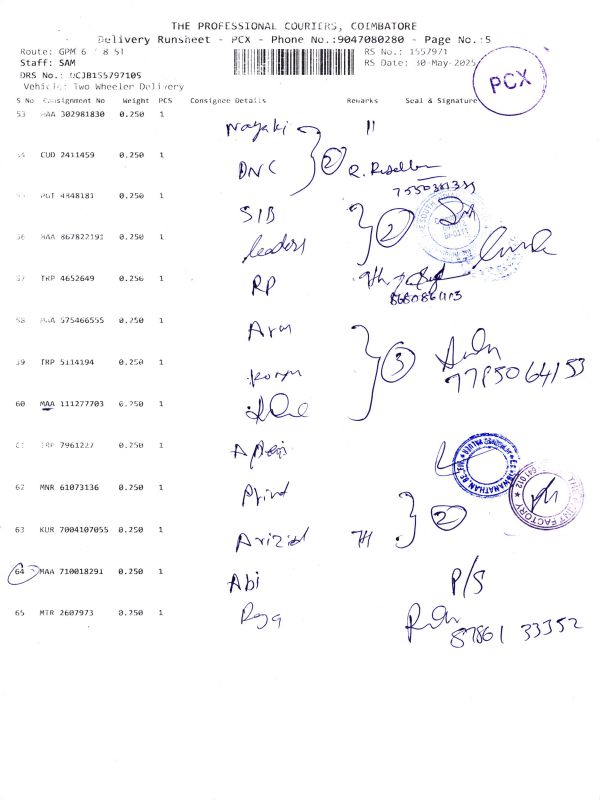 THE PROFESSIONAL COURIERS, COIMBATORE
Delivery Runsheet - PCX - Phone No.:9047080280 - Page No.:5
Route: GPM 6 / 8 ST
RS No.: 1557971
Staff: SAM
RS Date: 30-May-2025
DRS No.: UCJB155797105
Vehicle: Two Wheeler Delivery
PCX
S No Consignment No Weight PCS Consignee Details Remarks Seal & Signature
53 MAA 302981830 0.250 1
Nayaki 11
54 CUD 2411459 0.250 1
DNC 2
7550381339
55 PGT 4848181 0.250 1
SIB
56 MAA 867822191 0.250 1
leaders 2
57 TRP 4652649 0.250 1
RP 9th
8680864113
58 MAA 575466555 0.250 1
Arun
59 TRP 5114194 0.250 1
3
7795064153
60 MAA 111277703 0.250 1
61 TRP 7961227 0.250 1
62 MNR 61073136 0.250 1
2
641 012
63 KUR 7004107055 0.250 1
7H
64 MAA 710018291 0.250 1
Abi P/S
65 MTR 2607973 0.250 1
87861 33352